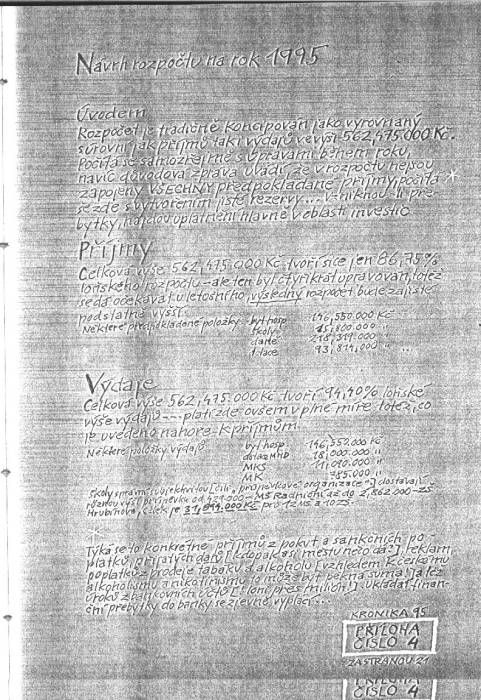 Návrh rozpočtu na rok 1995
Úvodem
Rozpočet je tradičně koncipován jako vyrovnaný
surovní jak příjmů tak i výdajů ve výši 562,475.000 Kč.
Počítá se samozřejmě s úpravami během roku,
navíc důvodová zpráva uvádí, že v rozpočtu nejsou
zapojeny VŠECHNY předpokládané příjmy, počítá *
se zde s vytvořením jisté rezervy... Vzniknou-li pře-
bytky, najdou uplatnění hlavně v oblasti investic
Příjmy
Celková výše 562,475.000 Kč tvoří sice jen 86,75%
loňského rozpočtu - ale ten byl čtyřikrát upravován, totéž
se dá očekávat u letošního, výsledný rozpočet bude zajisté
podstatně vyšší.
Některé předpokládané položky - byt.hosp. 146,550.000 Kč
školy 15,800.000 "
daně 218,319.000 "
dotace 93,814.000 " ...
Výdaje
Celková výše 562,475.000 Kč tvoří 94,40% loňské
výše výdajů --- platí zde ovšem v plné míře totéž, co
je uvedeno nahoře k příjmům.
Některé položky výdajů byt.hosp. 146,550.000 Kč
dotaz MHD 18,000.000 "
MKS 11,090.000 "
MK 785.000 "
Školy s právní subjektivitou [čili "příspěvkové organizace"] dostávají
různou výši příspěvku od 429.000 - MŠ Radniční až do 2,862.000 - ZŠ
Hrubínova, celek je 31,944.000 Kč pro 12 MŠ a 10 ZŠ
*
Týká se to konkrétně příjmů z pokut a sankčních po-
platků, přijatých darů [kdopak asi městu něco dá?] reklam,
poplatků z prodeje tabáku a alkoholu [vzhledem k českému
alkoholismu a nikotinismu to může být pěkná suma!] a též
úroků z bankovních účtů [loni přes milión!] Ukládat finan-
ční přebytky do banky se zjevně vyplácí...
KRONIKA 95
PŘÍLOHA
ČÍSLO 4
ZA STRANOU 21
PŘÍLOHA
ČÍSLO 4